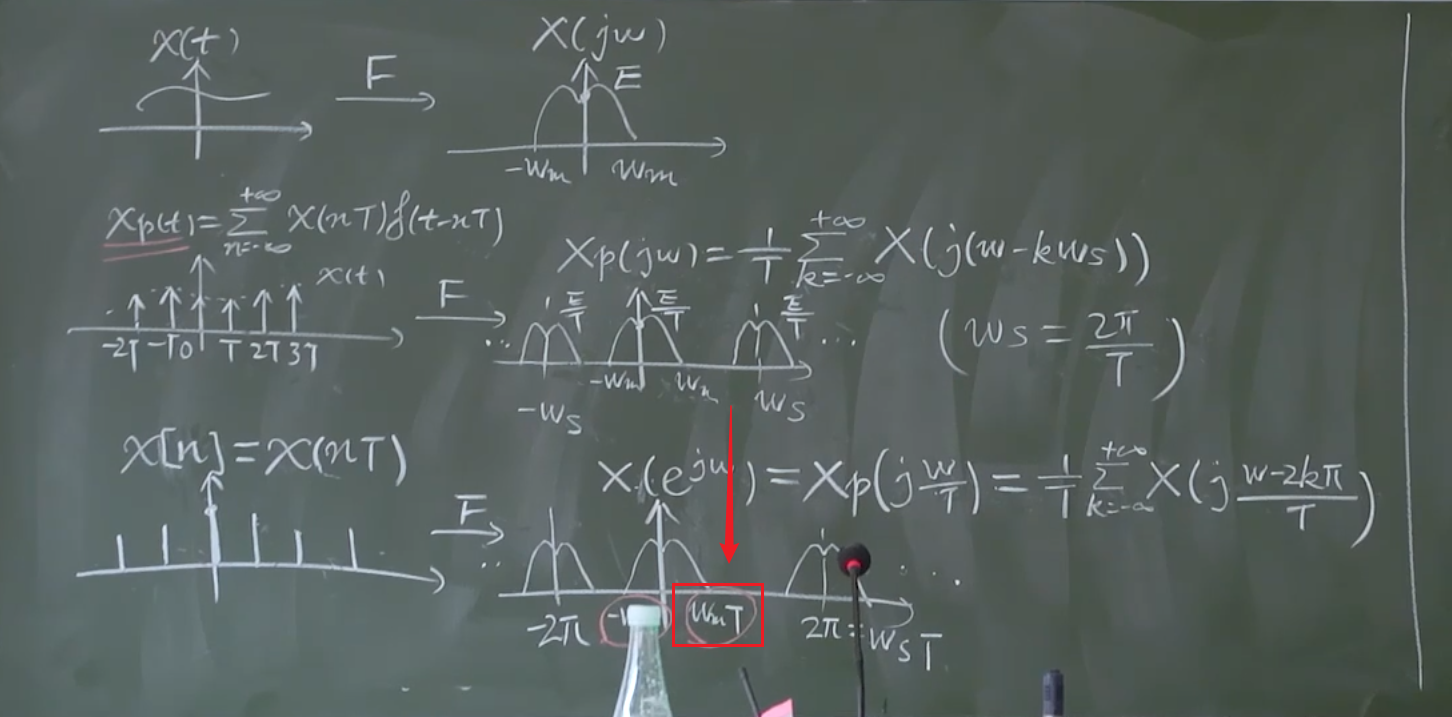 x(t)
F
X(jω)
E
-ωm ωm
xp(t)=∑_{n=-∞}^{+∞} x(nT)δ(t-nT)
x(t)
-2T -T 0 T 2T 3T
F
Xp(jω)=1/T ∑_{k=-∞}^{+∞} X(j(ω-kωs))
... E/T E/T E/T ...
(ωs=2π/T)
-ωm ωm
-ωs ωs
x[n]=x(nT)
F
X(e^{jω})=Xp(jω/T)=1/T ∑_{k=-∞}^{+∞} X(j(ω-2kπ)/T)
.. ...
-2π ωmT 2π=ωsT